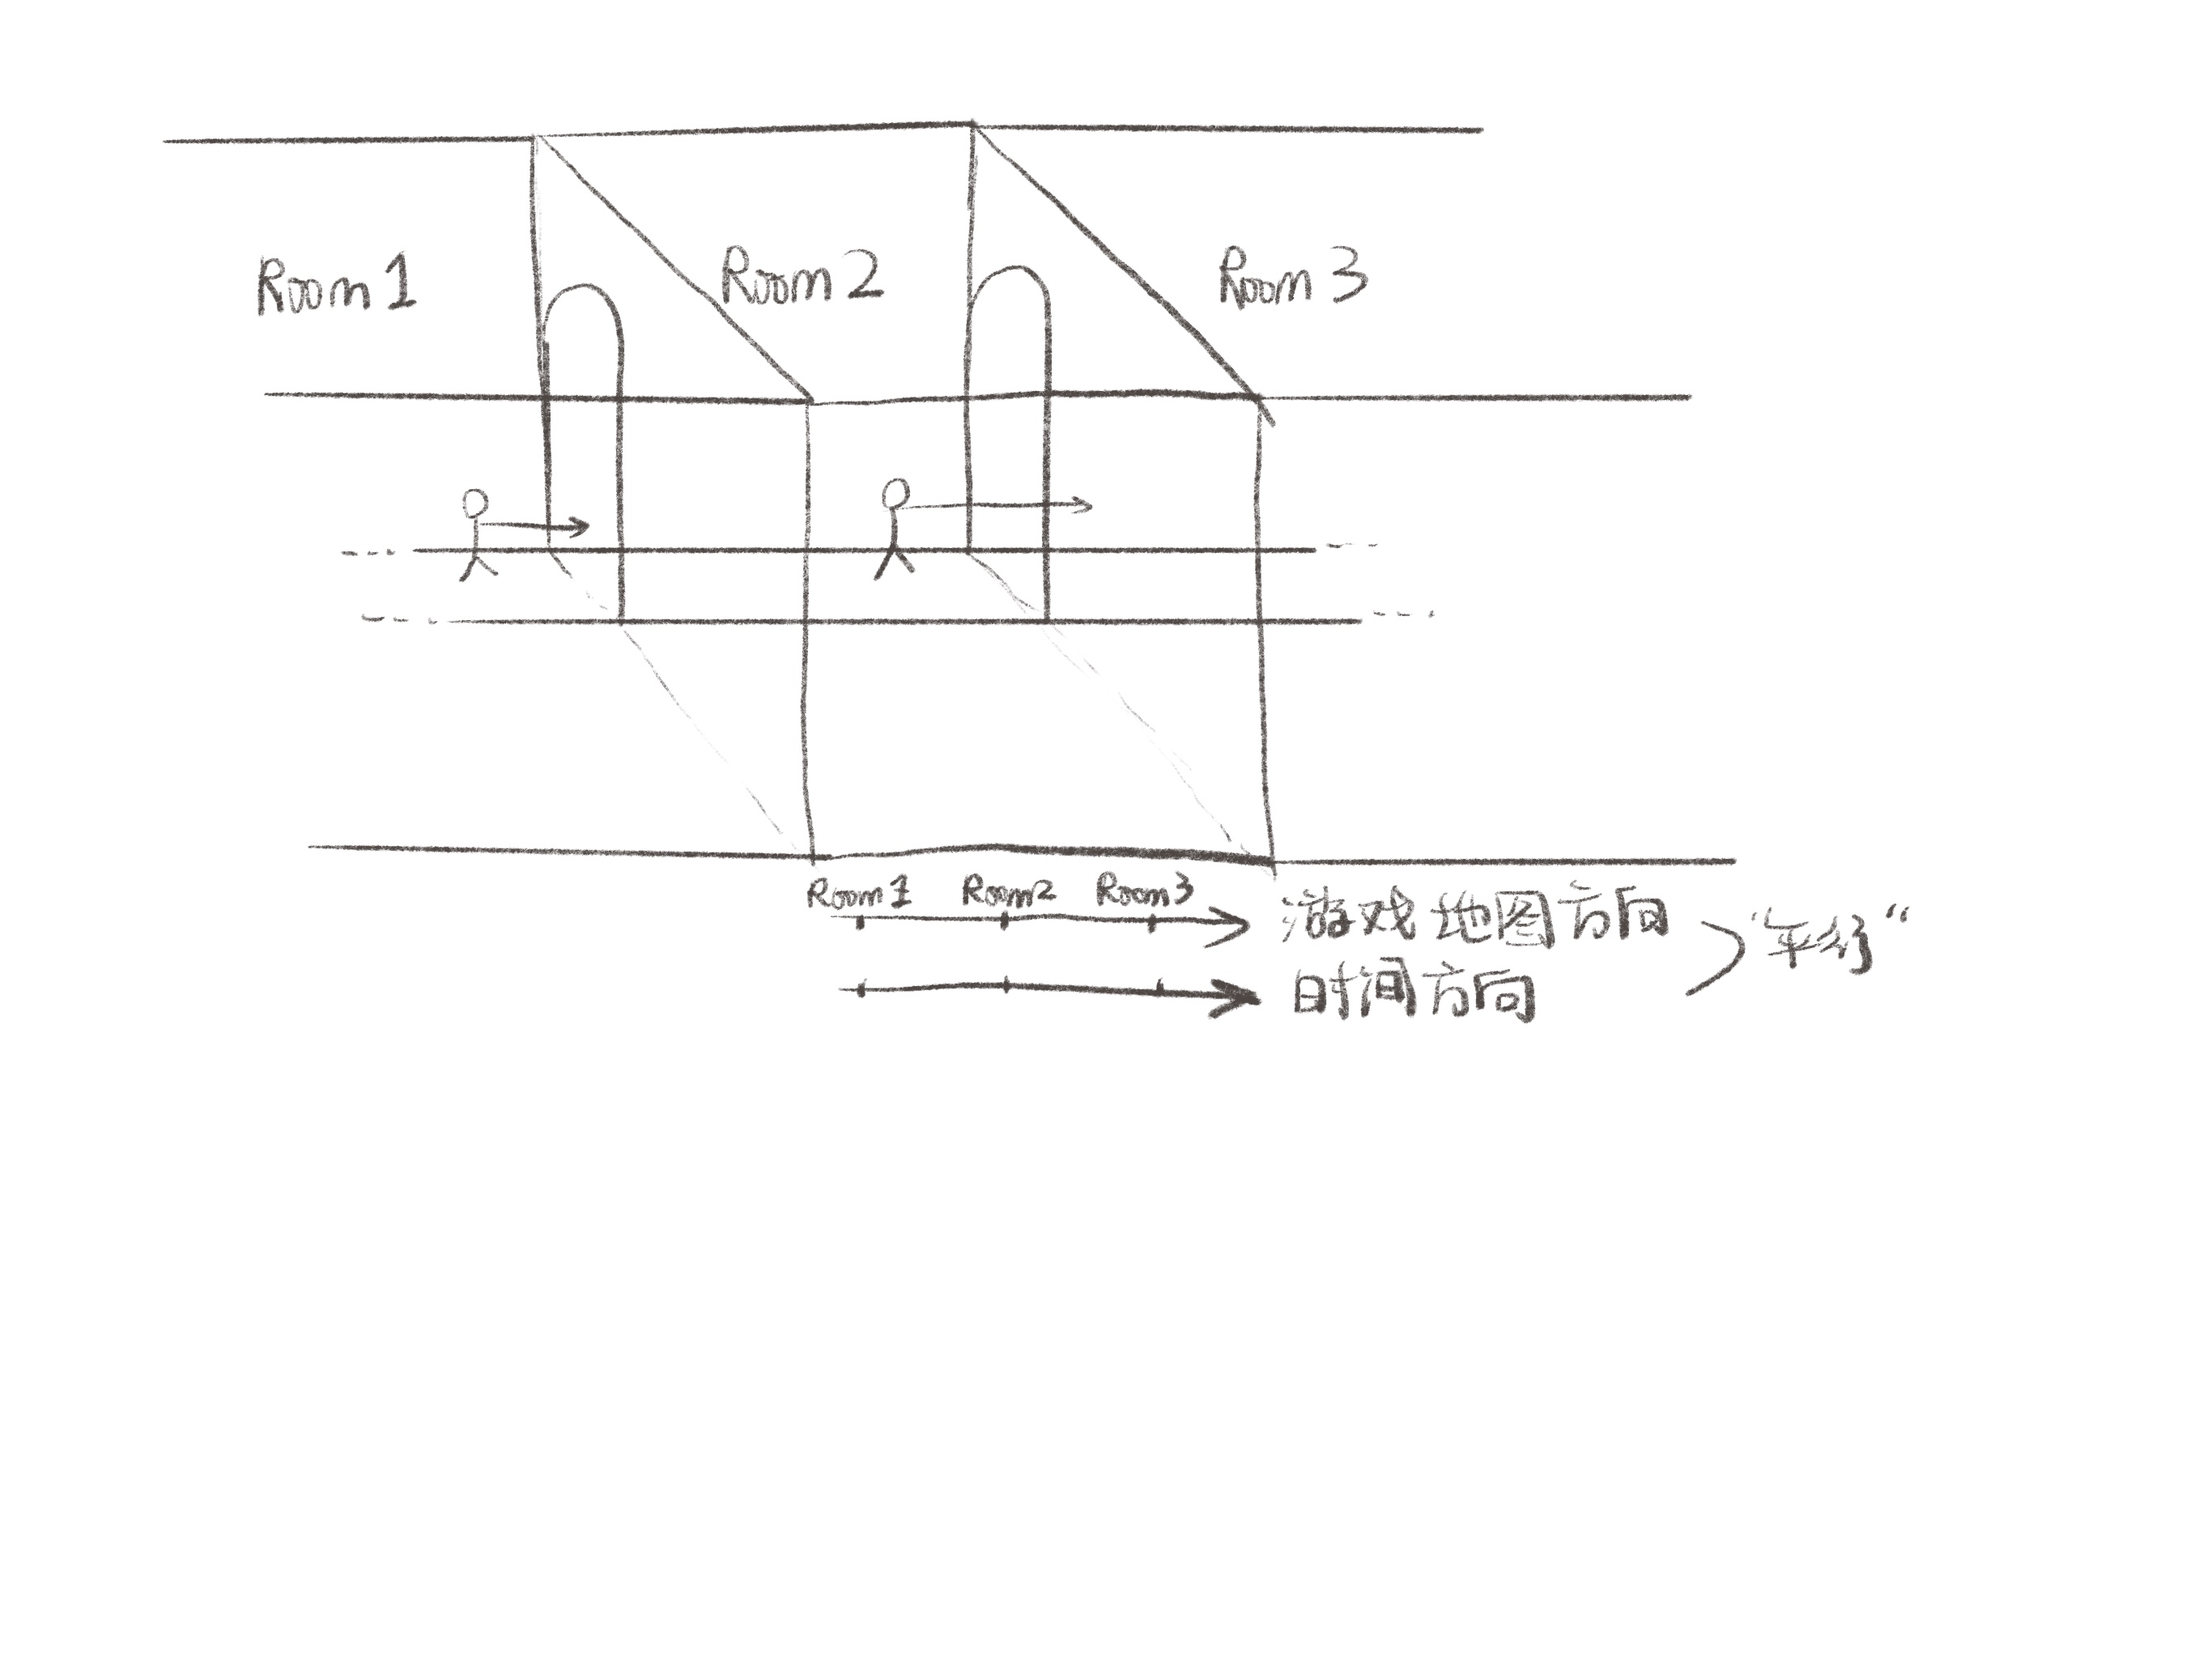 Room 1
Room 2
Room 3
Room1 Room2 Room3
游戏地图方向
时间方向
"平行"